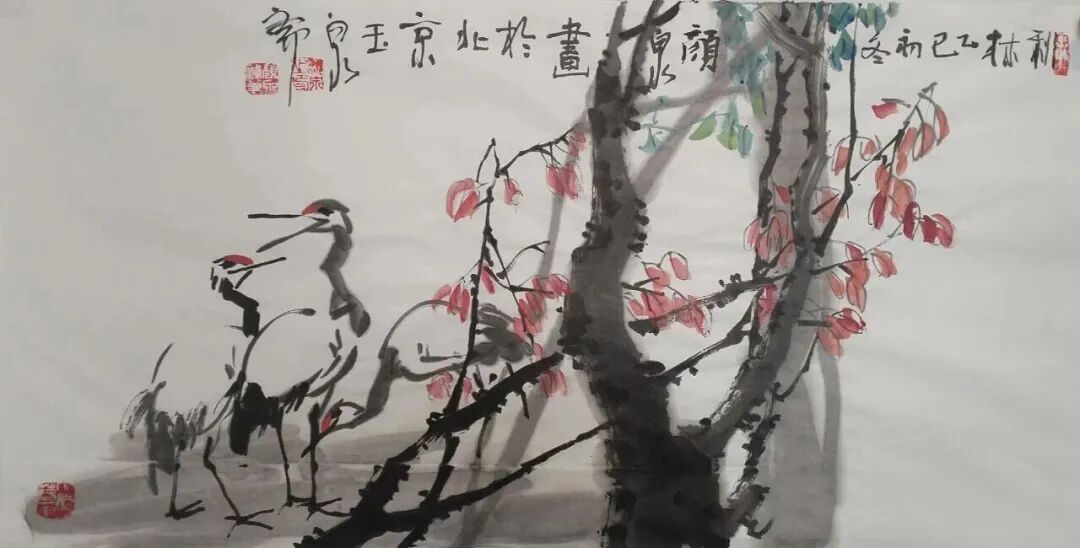 林乙巳初冬顔泉畫於北京玉泉齋